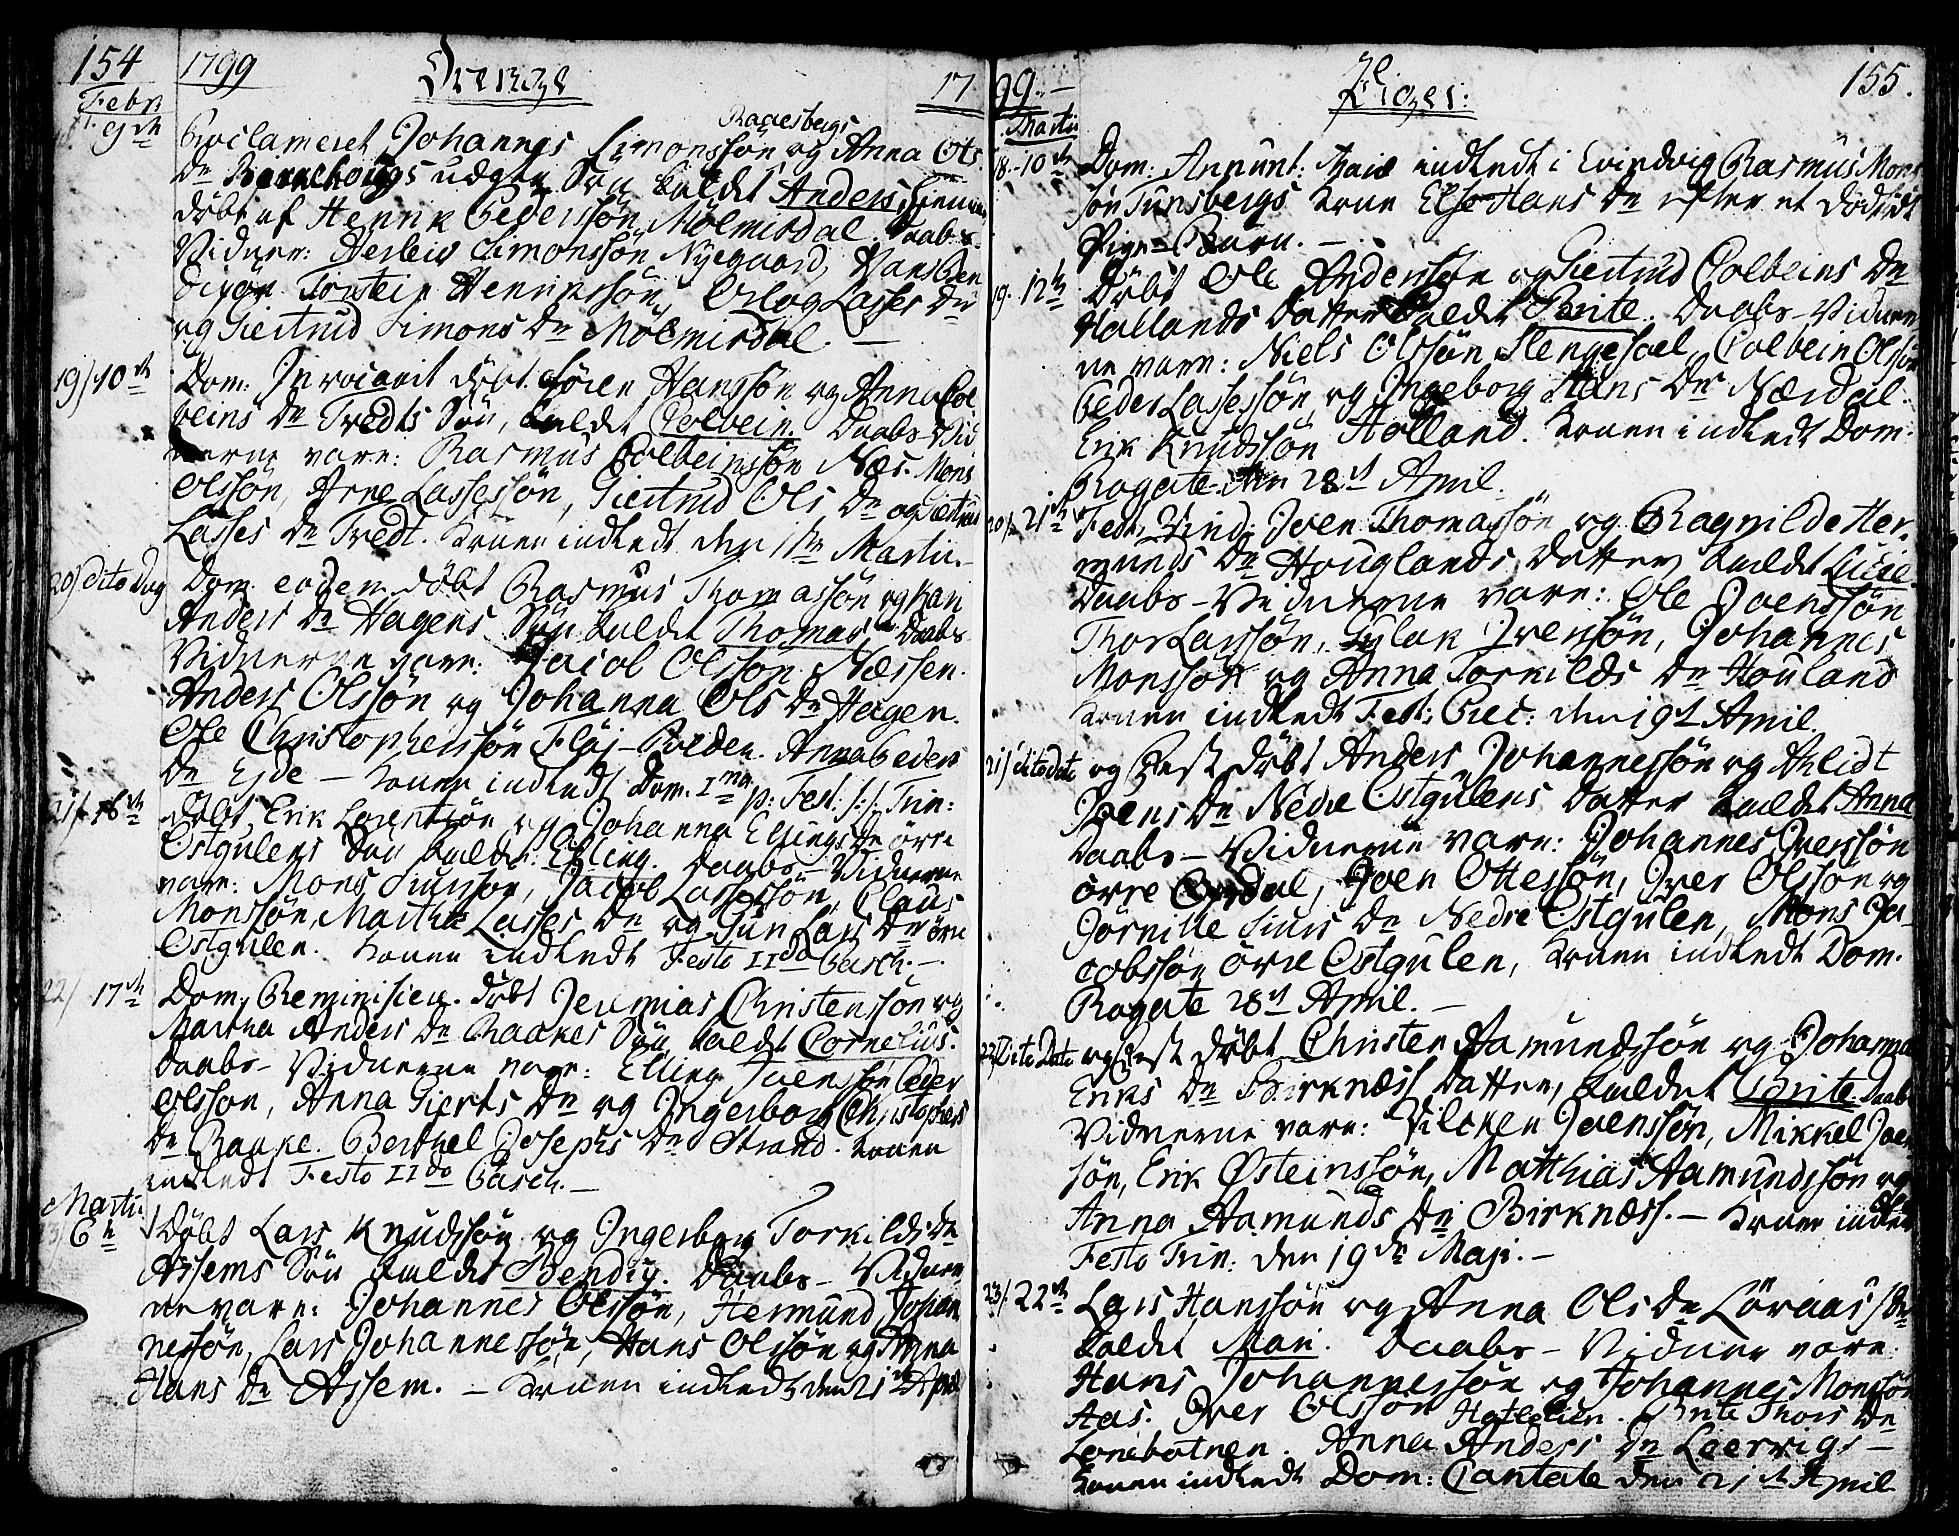 154 1799 Drenge 17
Febr
9de Proclameret Johannes Simonssön Raaesbergs og Anna Ols
Dr udgte Sön kaldet Anders, hiemme
döbt af Henrik Pederssön Mölmisdal. Daabs-
Vidner: Herleiv Simonssön Nyegaard, Hans
Torstein Henrikssön, Lasses Dr
og Giertrud Simons Dr Mölmisdal. —
19/ 10de Dom: Invocavit döbt Sören Hanssön og Anna Col
beins Dr Tredts Sön, kaldet Colbein. Daabs-Vid
nerne vare: Rasmus Colbeinssön Næs. Mons
Olssön, Arne Lassessön, Giertrud Ols Dr og Giertrud
Lasses Dr Tredt. Konen indledt den Martii.
20/ dito Dag Dom. eodem döbt Rasmus Thomassön og Kari
Anders Dr Hagens Sön kaldet Thomas. Daabs
Vidnerne vare: Jacob Olsson Næssen.
Anders Olssön og Johanna Ols Dr Hagen.
Ole Christopherssön Flöj-Bolden. Anna Peders
Dr Eide — Konen indledt Dom. I ma p: Fest: S: S. Trin:
21/ 16de Döbt Erik Lorentssön og Johanna Ellings Dr örre
Ostgulens Sön kaldet: Elling. Daabs-Vidnerne
vare: Mons Siurssön, Jacob Lassessön, Claus
Monssön, Martha Lasses Dr og Gun Lars Dr örre
Ostgulen. Konen indledt Festo II do Pasch. —
22/ 17de Dom: Reminiscer. döbt Jeremias Christenssön og
Martha Anders Dr Raakes Sön kaldet Cornelius.
Daabs-Vidnerne vare: Elling Joenssön Peder
Olsson, Anna Gierts Dr og Ingerborg Christophers
Dr Raake. Berthel Josephs Dr Strand. Konen
indledt Festo II do Pasch. —
Martii
6te Döbt Lars Knudssön og Ingerborg Torkilds Dr
Assems Sön kaldet Bendix. Daabs-Vidner
ne vare: Johannes Olssön, Hermund Johan
nessön, Lars Johannessön, Hans Olssön og Anna
Hans Dr Assem. — Konen indledt den 21de Apr
99. — Piger: 155.
Martii
18. 10de Dom: Annunt: Mariæ indledt i Evindvig Rasmus Mons
sön Tunsbergs Kone Else Hans Dr efter et dödfödt
Pige-Barn. —
19. 12te Döbt Ole Anderssön og Giertrud Colbeins Dr
Hallands Datter kaldet Brite. Daabs-Vidner
ne vare: Niels Olssön Slengesoel, Colbein Olssön
Peder Lassessön og Ingeborg Hans Dr Nærdal.
Erik Knudssön Holland. Konen indledt Dom.
Rogate den 28de April.
20/ 21de Fest: Vind: Joen Thomassön og Ragnilde Her-
munds Dr Houglands Datter kaldet Lucie
Daabs-Vidnerne vare: Ole Joenssön
Thor Larssön, Iverssön, Johannes
Monssön og Anna Torkilds Dr Houland
Konen indledt Fest: Prec: den 19de April.
21/ dito Date og Fest döbt Anders Johannessön og Ahlidt
Joens Dr Nedre Ostgulens Datter kaldet Anna
Daabs-Vidnerne vare: Johannes Iverssön
örre Opdal, Joen Ottessön, Iver Olssön og
Jörnille Siurs Dr Nedre Ostgulen, Mons Ja-
cobssön örre Ostgulen, Konen indledt Dom.
Rogate 28de April. —
22/ Dito Date og Fest döbt Christen Aamundssön og Johanna
Eriks Dr Birknæss Datter, kaldet Brite. Daabs
Vidnerne vare: Vilchen Joenssön, Mikkel Joens
sön, Erik Østeinssön, Matthias Aamundssön og
Anna Aamunds Dr Birknæss. — Konen indledt
Festo Trin: den 19de Maji. —
23/ 22de Lars Hanssön og Anna Ols Dr Löraas
kaldet Mari. Daabs-Vidner vare:
Hans Johannessön og Johannes Monssön
Aas. Iver Olsson Hatlelien. Brite Thors Dr
Lonebotnen. Anna Anders Dr Leervigs —
Konen indledt Dom: Cantate den 21de April